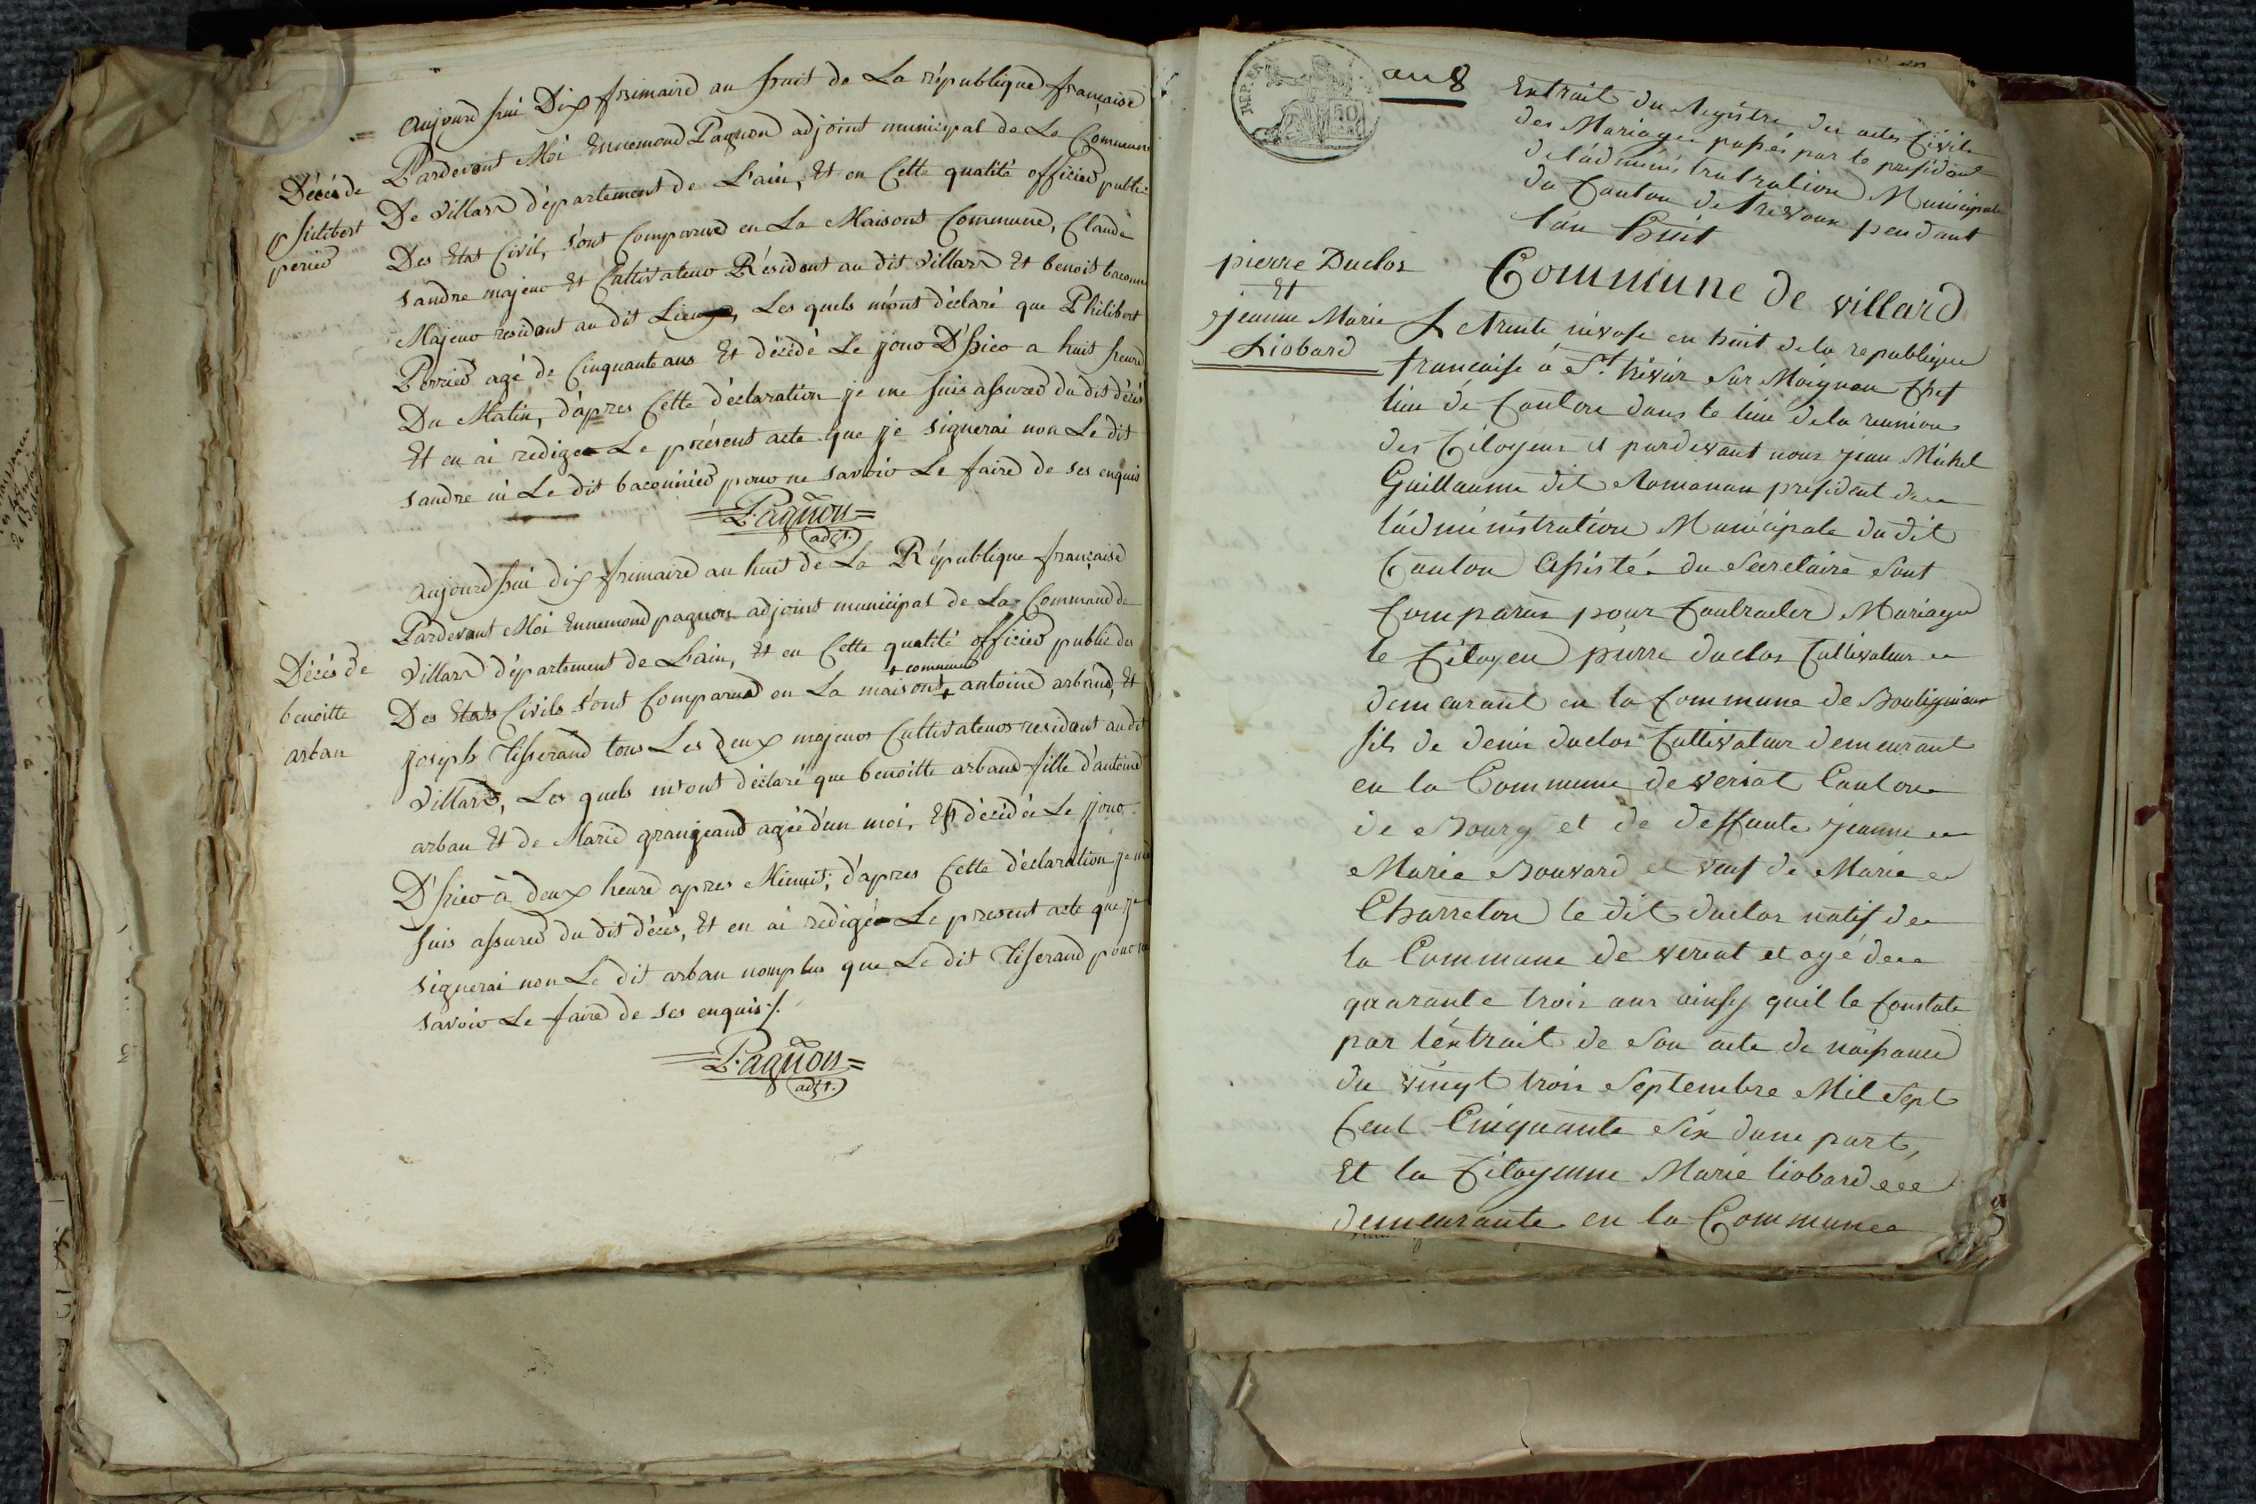 Aujourd'hui Dix frimaire an huit de La république française
Pardevant Moi Ennemond Pagnon adjoint municipal de La Commune
De villars département de L'ain, Et en Cette qualité officier public
Des Etat Civil, sont Comparus en La Maisont Commune, Claude
sandre majeur Et Cultivateur Résident au dit villars Et benoit
Majeur resident au dit Lieu, Les quels m'ont déclaré que Philibert
Perrier agé de Cinquante ans Et décédé Le jour D'hier a huit heure
Du Matin, d'après Cette déclaration je me suis assurer du dit décès
Et en ai rediger Le présent acte que je signerai non Le dit
sandre ni Le dit baconnier pour ne savoir Le faire de ses enquis
Pagnon
adjt.
Décès de
philibert
perier
Aujourd'hui dix frimaire an huit de La République française
Pardevant Moi Ennemond pagnon adjoint municipal de La Commune de
villars département de L'ain, Et en Cette qualité officier public des
+ commune
Des Etats Civils sont Comparus en La maisont + antoine arband, Et
joseph Tisserand tous Les deux majeurs Cultivateurs resident au dit
villars, Les quels m'ont déclaré que benoitte arband fille d'antoine
arban Et de Marie grangeand agée d'un moi, Et décédée Le jour
D'hier à deux heure apres Minuit, d'apres Cette déclaration je me
suis assurer du dit décès, Et en ai redigér Le present acte que je
signerai non Le dit arban nomplus que Le dit Tisserand pour ne
savoir Le faire de ses enquis /.
Pagnon
adjt.
Décès de
benoitte
arban
REP. FRA
50
an 8
Extrait du Registre des actes Civils
des Mariages passés par le président
de l'administratration Municipale
du Canton de trevoux pendant
l'an huit
Commune de villard
pierre Duclos
Et
jeanne Marie
Liobard
Le trente nivose en huit de la republique
francaise a St. trivier sur Moignan Chef
lieu de Canton dans le lieu de la reunion
des Citoyens et pardevant nous jean Michel
Guillaume dit Romanan president de
l'administration Municipale du dit
Canton assisté du Secretaire Sont
Comparus pour Contracter Mariage
le Citoyen pierre duclos Cultivateur
demeurant en la Commune de Bouligneux
fils de denis duclos Cultivateur demeurant
en la Commune de veriat Canton
de Bourg et de deffunte jeanne
Marie Bouvard et veuf de Marie
Charreton le dit duclos natif de
la Commune de veriat et agé de
quarante trois ans ainsy quil le Constate
par l'extrait de Son acte de naissance
du vingt trois Septembre Mil Sept
Cent Cinquante Six dune part,
Et la Citoyenne Marie liobard
demeurante en la Commune